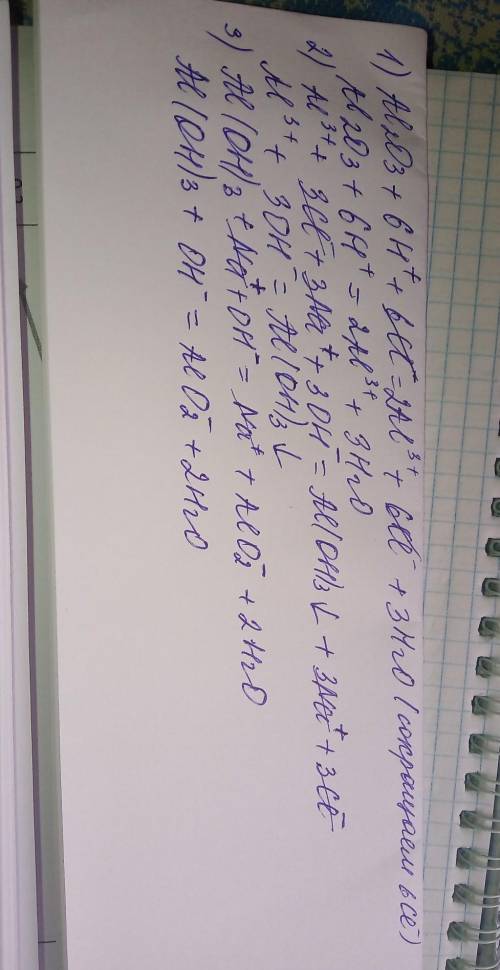 1) Al2O3 + 6H⁺ + 6Cl⁻ = 2Al³⁺ + 6Cl⁻ + 3H2O (сокращаем всё)
Al2O3 + 6H⁺ = 2Al³⁺ + 3H2O
2) Al³⁺ + 3Cl⁻ + 3Na⁺ + 3OH⁻ = Al(OH)3↓ + 3Na⁺ + 3Cl⁻
Al³⁺ + 3OH⁻ = Al(OH)3↓
3) Al(OH)3 + Na⁺ + OH⁻ = Na⁺ + AlO2⁻ + 2H2O
Al(OH)3 + OH⁻ = AlO2⁻ + 2H2O